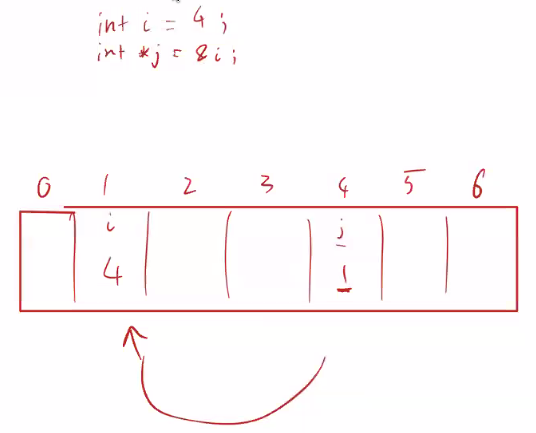 int i = 4 ;
int *j = &i ;
0 1 2 3 4 5 6
i j
4 1